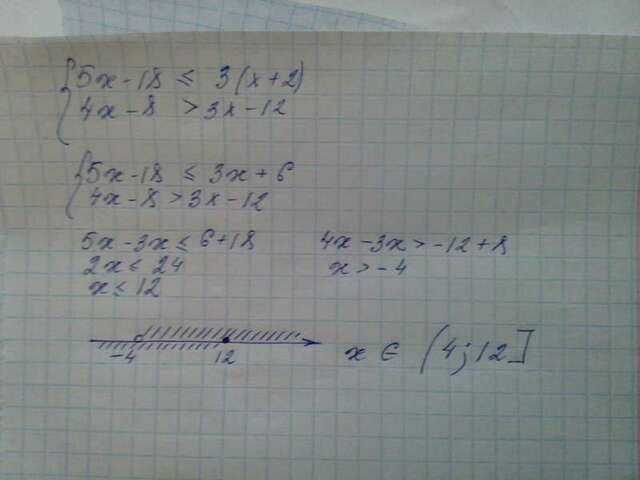 5x-18 ≤ 3(x+2)
4x-8 > 3x-12
5x-18 ≤ 3x+6
4x-8 > 3x-12
5x-3x ≤ 6+18 4x-3x > -12+8
2x ≤ 24 x > -4
x ≤ 12
-4 12 x ∈ (4; 12]